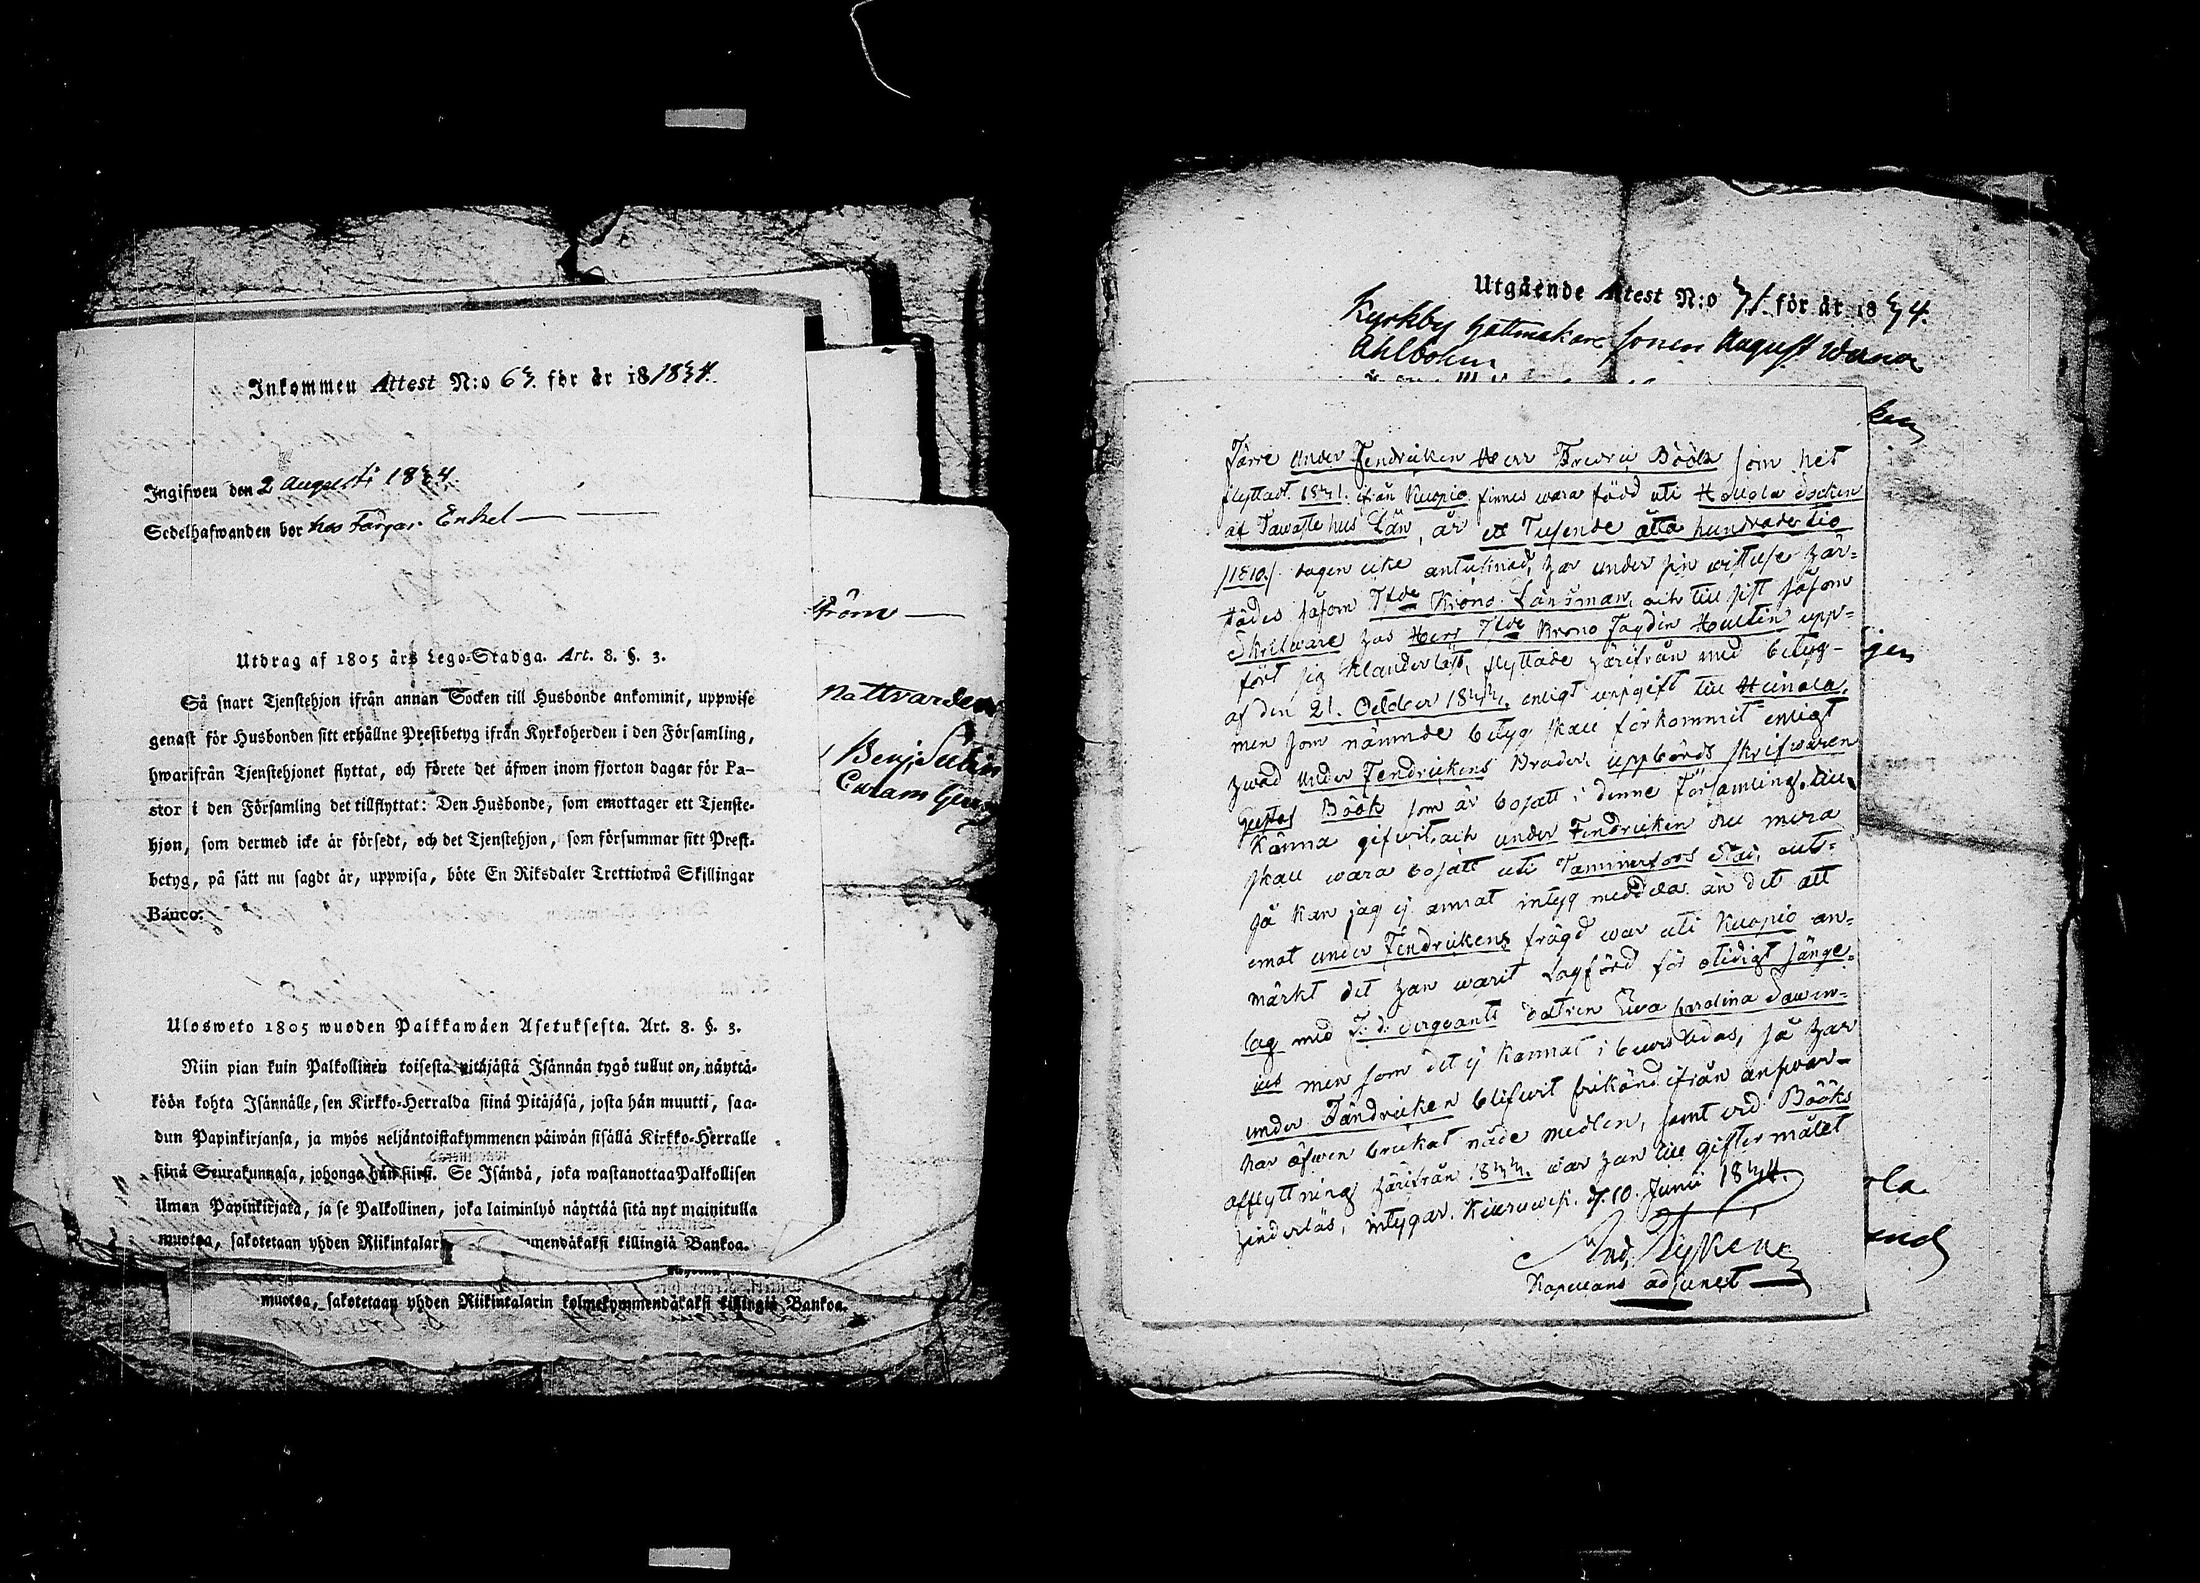 Inkommen Attest N:o 63. för år 181834.
Ingifwen den 2 Augusti 1834.
Sedelhafwanden bor hos Färgar. Enkel
Utdrag af 1805 års Lego-Stadga. Art. 8. §. 3.
Så snart Tjenstehjon ifrån annan Socken till Husbonde ankommit, uppwise
genast för Husbonden sitt erhållne Prestbetyg ifrån Kyrkoherden i den Församling,
hwarifrån Tjenstehjonet flyttat, och förete det äfwen inom fjorton dagar för Pa-
stor i den Församling det tillflyttat: Den Husbonde, som emottager ett Tjenste-
hjon, som dermed icke är försedt, och det Tjenstehjon, som försummar sitt Prest-
betyg, på sätt nu sagdt är, uppwisa, böte En Riksdaler Trettiotwå Skillingar
Banco.
Ulosweto 1805 wuoden Palkkawäen Asetuksesta. Art. 8. §. 3.
Niin pian kuin Palkollinen toisesta pitäjästä Isännän tygö tullut on, näyttä-
köön kohta Isännälle, sen Kirkko-Herralda siinä Pitäjäsä, josta hän muutti, saa-
dun Papinkirjansa, ja myös neljäntoistakymmenen päiwän sisällä Kirkko-Herralle
siinä Seurakunnasa, johonga hän siirsi. Se Isändä, joka wastanottaa Palkollisen
ilman Papinkirjata, ja se Palkollinen, joka laiminlyö näyttää sitä nyt mainitulla
muotoa, sakotetaan yhden Riikintalar mmendäkaksi killingiä Bankoa.
muotoa, sakotetaan yhden Riikintalarin kolmekymmendäkaksi killingiä Bankoa.
ström
Nattvarden
Benj.
Utgående Attest N:o 71. för år 1834.
Kyrkby Hattmakare Sonen August Werner
Ahlbohm
Förre Under Fendricken Herr Fredric Böök som hit
flyttadt 1831. ifrån Kuopio finnes wara född uti Hollola Socken
af Tawastehus Län, år ett Tusende åtta hundrade tio
/1810./ dagen icke antecknad, har under sin wistelse här-
städes såsom T.f.de Krono Länsman, och till sist såsom
Skrifware hos Herr T.f.de Krono Fogden Hultin upp-
fört sig klanderlöst, flyttade härifrån med betyg
af den 21. October 1833. enligt uppgift till Heinola,
men som nämnde betyg skall förkommit enligt
hwad Under Fendrickens Broder uppbörds skrifwaren
Gustaf Böök som är bosatt i denne Församling till
känna gifwit, och under Fendricken nu mera
skall wara bosatt uti Tammerfors Stad, alt-
så kan jag ej annat intyg meddela än det att
emot under Fendrickens frägd war uti Kuopio an-
märkt det han warit Lagförd för otidigt Sänge-
lag med F. d. Sergeants Dottren Ewa Carolina Sawen-
ius men som det ej kannat i bewis ledas, så har
under Fändricken blifwit frikänd ifrån answar
har äfwen brukat nåde medlen, samt wid Bööks
afflyttning härifrån 1833. war han till giftermålet
hinderlös, intygar. Kiuruwesi. d. 10. Junii 1834.
And. Nykene
Kapellans adjunct